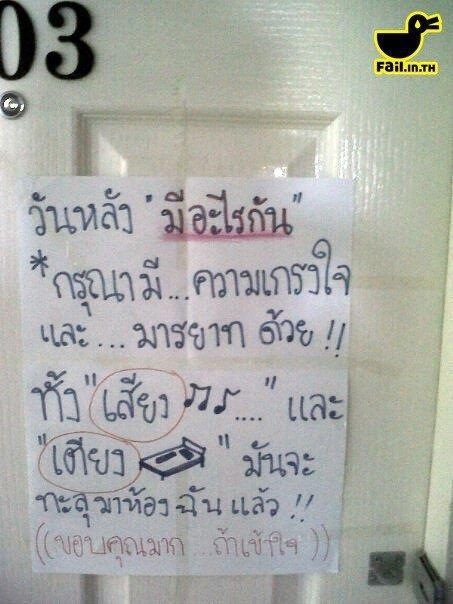 03
Fail.in.TH
วันหลัง "มีอะไรกัน"
*กรุณามี...ความเกรงใจ
และ...มารยาท ด้วย !!
ทั้ง "เสียง ...." และ
"เตียง " มันจะ
ทะลุมาห้องฉันแล้ว !!
((ขอบคุณมาก ...ถ้าเข้าใจ ))